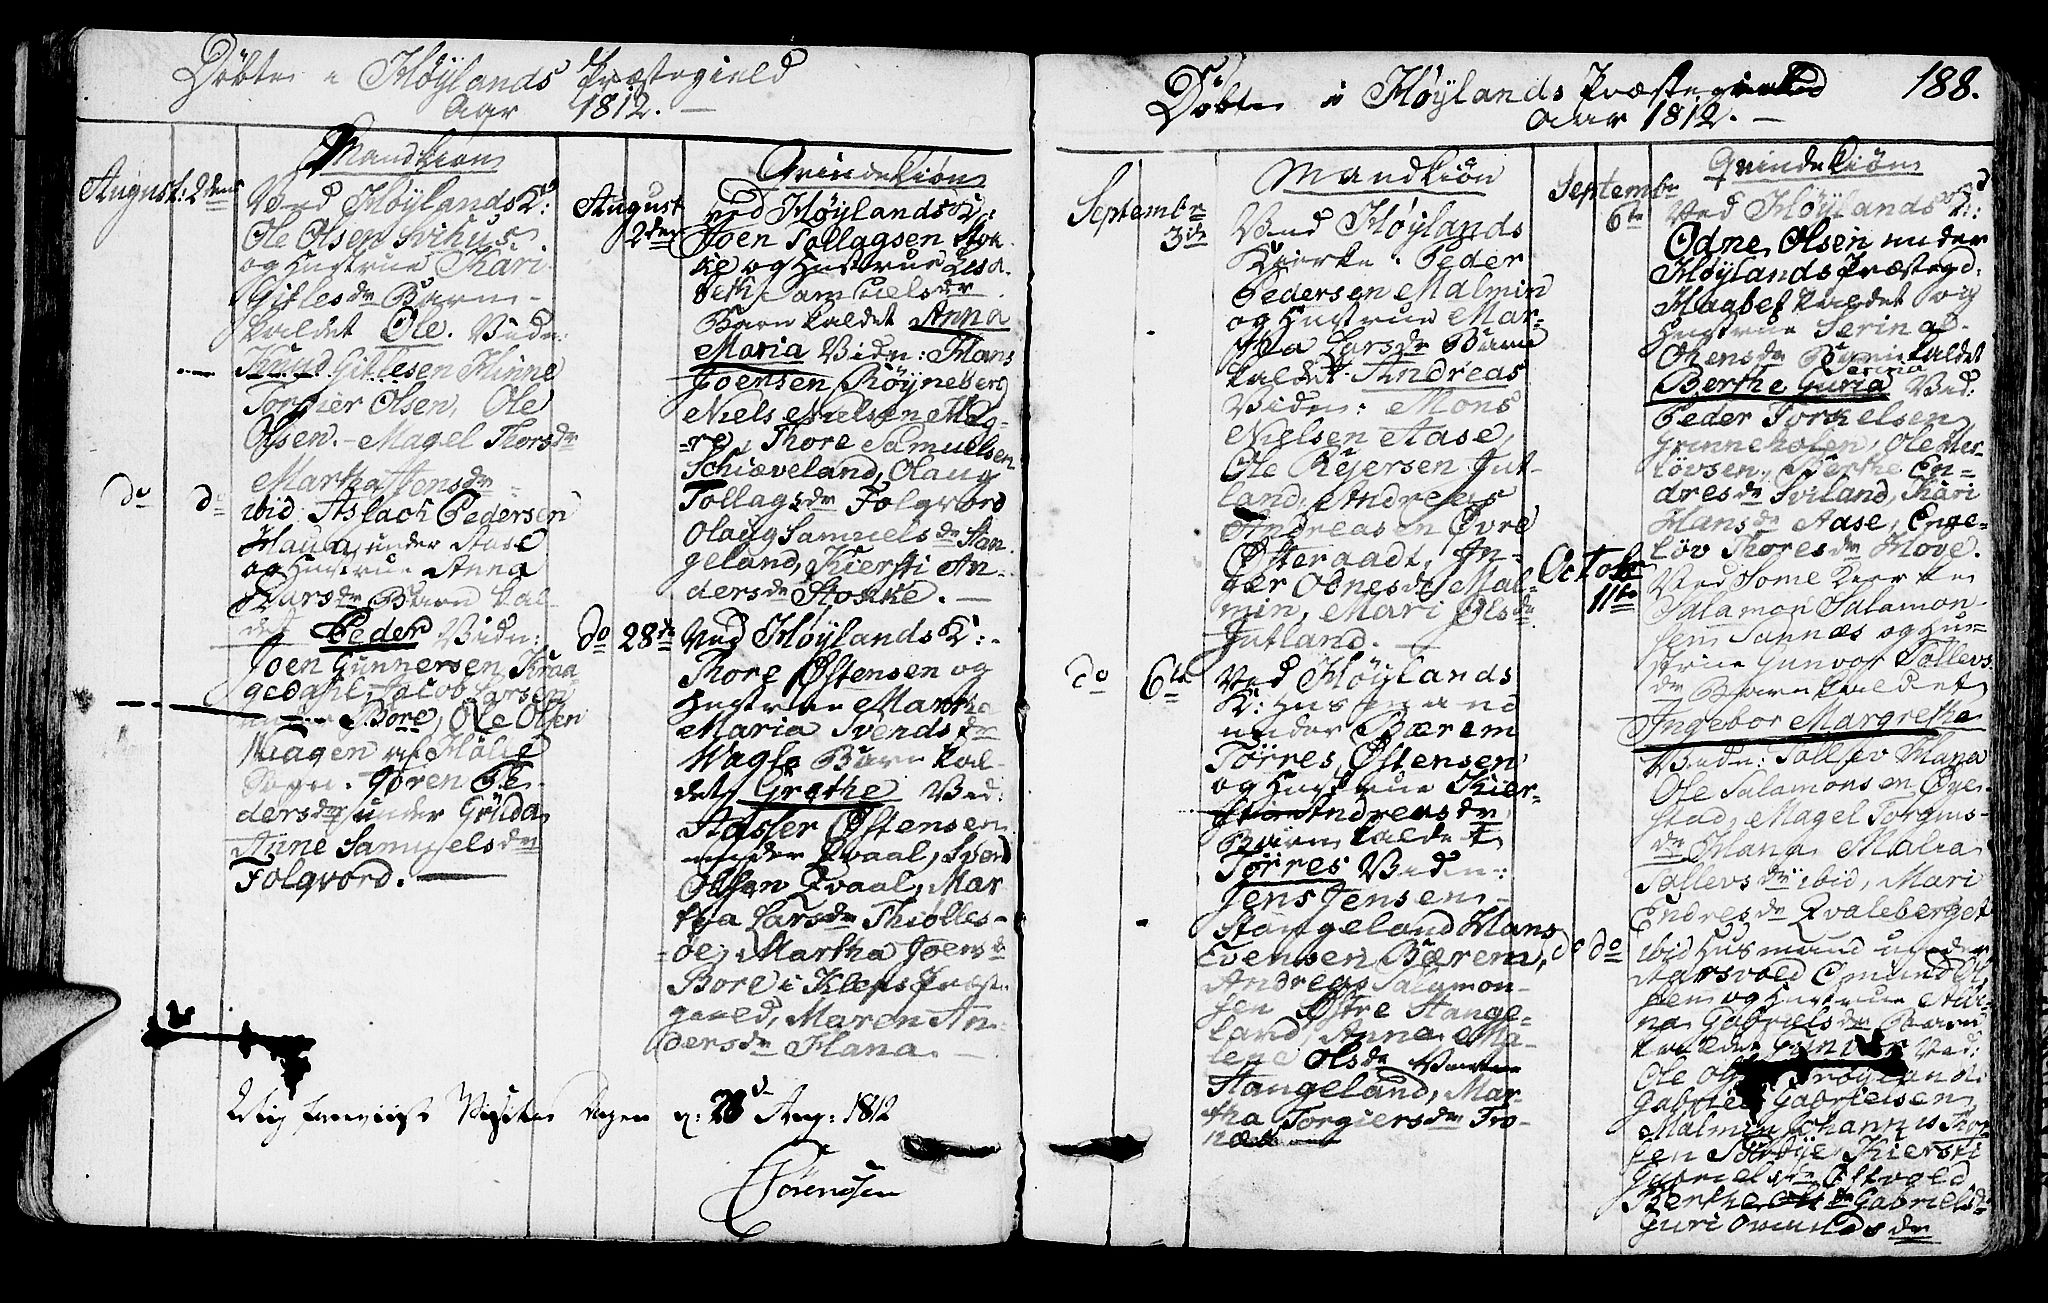 Döbte i Höylands Præstegield
Aar 1812. —
Mandkiön
August: 2den
Ved Höylands K:
Ole Olsen Svihus
og Hustrue Kari
Gitlesdr Barn
kaldet Ole. Vidn:
Knud Gitlesen Hinne
Torgier Olsen, Ole
Olsen. - Magel Thorsdr
Martha Jonsdr
do do
ibid: Aslach Pedersen
Hauen, under Aase
og Hustrue Anna
Larsdr Barn kal-
det Peder Vidn:
Joen Gunnersen Kraa-
gedahl, Jacob Larsen
under Bore, Ole Olsen
af Hölie
Sogn. Gören Pe-
dersdr under Gruda
Anne Samuelsdr
Folqvord. —
Qvindekiön
August 2den
ved Höylands K:
Joen Tollagsen Stok-
ke og Hustrue Lisa-
beth Samuelsdr
Barn kaldet Anna
Maria Vidn: Hans
Joensen Röyneberg
Niels Nielsen Meg-
re, Thore Samuelsen
Schiæveland, Olaug
Tollagsdr Folqvord
Olaug Samuelsdr Stan-
geland, Kiersti An-
dersdr Stokke. —
do 28de
Ved Höylands K: -
Thore Östensen og
Hustrue Martha
Maria Svendsdr
Wagle Barn kal-
det Grethe Vid:
Aasser Östensen
under Qvaal, Svend
Olsen Qvaal, Mar-
tha Larsdr Thiölles-
öe, Martha Joensdr
Bore i Kleps Præst-
gield, Maren An-
dersdr Hana. —
Visiteredagen d: 28d Aug: 1812
Sörensen
Döbte i Höylands Præstegield
Aar 1812. —
188.
Mandkiön
Septembr 3die
Ved Höylands
Kierke. Peder
Pedersen Malmin
og Hustrue Mar-
tha Larsdr Barn
kaldet Andreas
Vidn: Mons
Nielsen Aase,
Ole Reiersen Jut-
land, Andreas
Andreasen Övre
Österaadt, In-
ger Odnesdr Mal-
min, Mari Olsdr
Jutland. —
do 6te
Ved Höylands
K: Husmand
under Bærem
Törres Östensen
og Hustrue Kier-
stin Andreasdr
Barn kaldet
Törres Vidn:
Jens Jensen
Stangeland Hans
Evensen Bærem,
Andreas Salamon-
sen Östre Stange-
land, Anna Ma-
lene Olsdr
Stangeland, Mar-
tha Torgiersdr Tro-
næs
Qvindekiön
Septembr 6te
Ved Höylands K:
Odne Olsen under
Höylands Præstegd:
Hagbet kaldet og
Hustrue Serina
Ohensdr Barn kaldet
Serina
Berthe Guria Vid:
Peder Torkielsen
Grinneholen, Ole Her-
lovsen, Berthe En-
dresdr Sviland, Kari
Hansdr Aase, Enge-
löv Thoresdr Hove.
Octobr 11te
Ved Some Kierke
Salamon Salamon-
sen Sannæs og Hu-
strue Gunvor Tollevs
dr Barn kaldet
Ingebor Margrethe
Vidn: Tollev Hana
Ole Salamonsen Öye-
stad, Magel Torgius-
dr Hana, Malia
Tollevsdr ibid, Mari
Endresdr Qvaleberget
do do
ibid Husmand under
Aarsvold Omund Ol-
sen og Hustrue
Gabrielsdr Barn
kaldet Vid:
Ole Fröyland
Gabriel Gabrielsen
Malmin Johannis Thor-
sen Kiersti
Gabrielsdr Östvold
Berthe Gabrielsdr
Guri Omundsdr